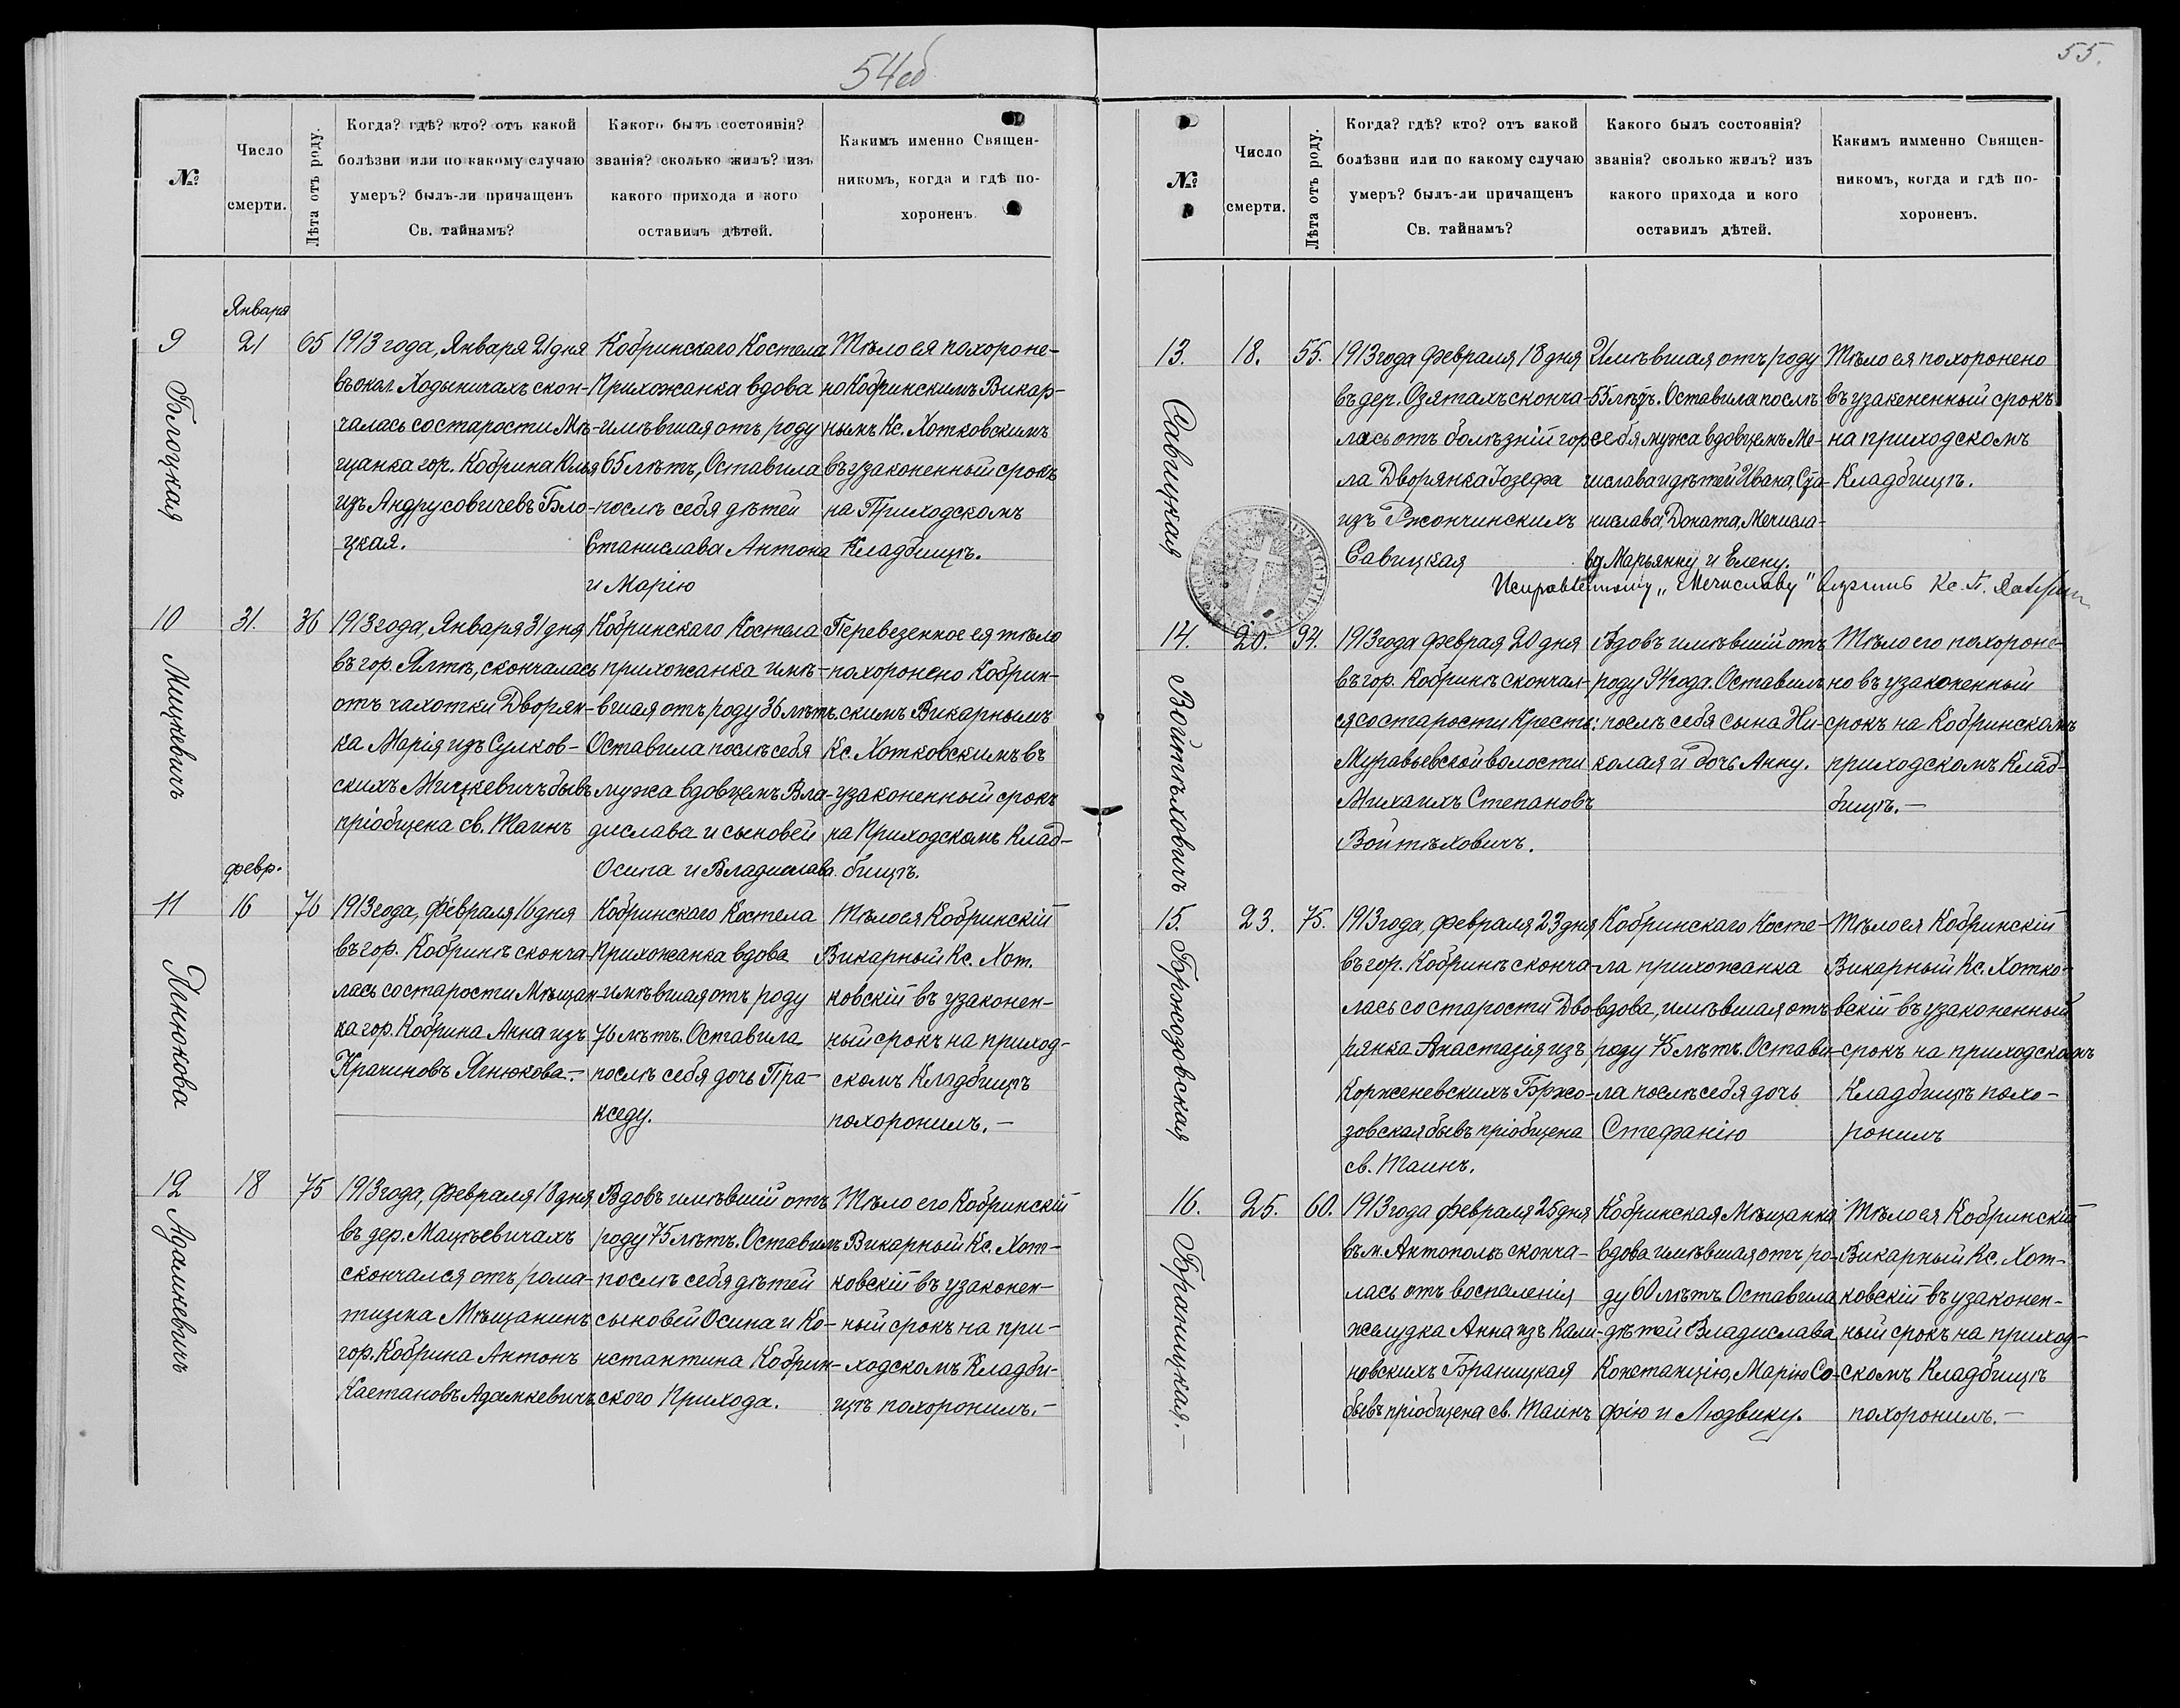 54об
№
Число
смерти.
Лѣта отъ роду.
Когда? гдѣ? кто? отъ какой
болѣзни или по какому случаю
умеръ? былъ-ли причащенъ
Св. тайнамъ?
Какого былъ состоянія?
званія? сколько жилъ? изъ
какого прихода и кого
оставилъ дѣтей.
Какимъ именно Священ-
никомъ, когда и гдѣ по-
хороненъ.
Января
9
Блоцкая
21
65
1913 года, Января 21 дня
въ окол. Ходыничахъ скон-
чалась со старости Мѣ-
щанка гор. Кобрина Юлья
изъ Андрусовичевъ Бло-
цкая.
Кобринскаго Костела
Прихожанка вдова
имѣвшая отъ роду
65 лѣтъ, Оставила
послѣ себя дѣтей
Станислава Антона
и Марію
Тѣло ея похороне-
но Кобринскимъ Викар-
нымъ Кс. Хотковскимъ
въ узаконенный срокъ
на Приходскомъ
Кладбищѣ.
10
Мицкевичъ
31.
36
1913 года, Января 31 дня
въ гор. Ялтѣ, скончалась
отъ чахотки Дворян-
ка Марія изъ Сулков-
скихъ Мицкевичъ бывъ
пріобщена св. Таинъ
Кобринскаго Костела
прихожанка имѣ-
вшая отъ роду 36 лѣтъ.
Оставила послѣ себя
мужа вдовцемъ Вла-
дислава и сыновей
Осипа и Владислава.
Перевезенное ея тѣло
похоронено Кобрин-
скимъ Викарнымъ
Кс. Хотковскимъ въ
узаконенный срокъ
на Приходскомъ Клад-
бищѣ.
февр.
11
Пинюкова
16
76
1913 года, Февраля 16 дня
въ гор. Кобринѣ сконча-
лась со старости Мѣщан-
ка гор. Кобрина Анна изъ
Крачиновъ
Кобринскаго Костела
Прихожанка вдова
имѣвшая отъ роду
76 лѣтъ. Оставила
послѣ себя дочь Пра-
кседу.
Тѣло ея Кобринскій
Викарный Кс. Хот.
ковскій въ узаконен-
ный срокъ на приход-
скомъ Кладбищѣ
похоронилъ.—
12
Адамкевичъ
18
75
1913 года, Февраля 18 дня
въ дер. Мацѣевичахъ
скончался отъ рома-
тизма Мѣщанинъ
гор. Кобрина Антонъ
Каетановъ Адамкевичъ
Вдовъ имѣвшій отъ
роду 75 лѣтъ. Оставилъ
послѣ себя дѣтей
сыновей Осипа и Ко-
нстантина Кобрин-
ского Прихода.
Тѣло его Кобринскій
Викарный Кс. Хот-
ковскій въ узаконен-
ный срокъ на при-
ходскомъ Кладби-
щѣ похоронилъ.—
55.
№
Число
смерти.
Лѣта отъ роду.
Когда? гдѣ? кто? отъ какой
болѣзни или по какому случаю
умеръ? былъ-ли причащенъ
Св. тайнамъ?
Какого былъ состоянія?
званія? сколько жилъ? изъ
какого прихода и кого
оставилъ дѣтей.
Какимъ имменно Священ-
никомъ, когда и гдѣ по-
хороненъ.
13.
Савицкая
18.
55.
1913 года Февраля 18 дня
въ дер. Озятахъ сконча-
лась отъ болѣзній гор
ла Дворянка Іозефа
изъ Ржончинскихъ
Савицкая
Имѣвшая отъ роду
55 лѣтъ. Оставила послѣ
себя мужа вдовцемъ Ме-
числава и дѣтей Ивана, Ста-
нислава, Доната, Мечисла-
ва, Марьянну и Елену.
Тѣло ея похоронено
въ узакененный срокъ
на приходскомъ
Кладбищѣ.
"Мечиславу" Кс.
14.
Войтѣховичъ
20.
94.
1913 года Феврая 20 дня
въ гор. Кобринѣ скончал-
ся со старости Крестъ:
Муравьевской волости
Михаилъ Степановъ
Войтѣховичъ.
Вдовъ имѣвшій отъ
роду 94 года. Оставилъ
послѣ себя сына Ни-
колая и дочь Анну.
Тѣло его похороне-
но въ узаконенный
срокъ на Кобринскомъ
приходскомъ Клад-
бищѣ.—
15.
Бржозовская
23.
75.
1913 года, Февраля 23 дня
въ гор. Кобринѣ сконча-
лась со старости Дво-
рянка Анастазія изъ
Корженевскихъ Бржо-
зовская бывъ пріобщена
св. Таинъ.
Кобринскаго Косте-
ла прихожанка
вдова, имѣвшая отъ
роду 75 лѣтъ. Остави-
ла послѣ себя дочь
Стефанію
Тѣло ея Кобринскій
Викарный Кс. Хотко-
вскій въ узаконенный
срокъ на приходскомъ
Кладбищѣ похо-
ронилъ
16.
Браницкая.—
25.
60.
1913 года Февраля 25 дня
въ м. Антополѣ сконча-
лась отъ воспаленія
желудка Анна изъ Кали-
новскихъ Браницкая
бывъ пріобщена св. Таинъ
Кобринская Мѣщанка
вдова имѣвшая отъ ро-
ду 60 лѣтъ Оставила
дѣтей Владислава,
Констанцію, Марію Со-
фію и Людвику.
Тѣло ея Кобринскій
Викарный Кс. Хот-
ковскій въ узаконен-
ный срокъ на приход-
скомъ Кладбищѣ
похоронилъ.—